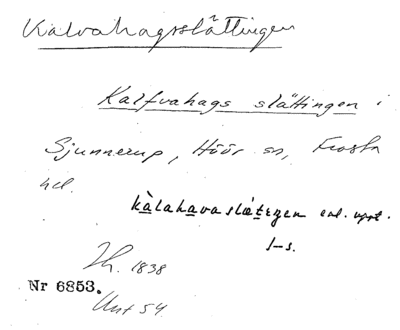 Kalvahagsslättingen
Kalfvahags slättingen i
Sjunnerup, Höör sn, Frosta
hd.
kàlahavaslætegen enl. uppt.
l-s.
Jh. 1838
Nr 6853.
Unt 54